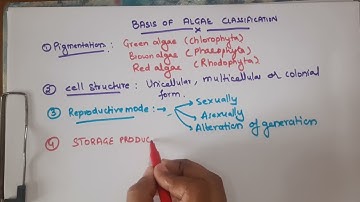 BASIS OF ALGAE CLASSIFICATION
① Pigmentation : Green algae (Chlorophyta)
Brown algae (Phaeophyta)
Red algae (Rhodophyta)
② cell structure : Unicellular, multicellular or colonial
form.
③ Reproductive mode : → Sexually
→ Asexually
→ Alteration of generation
④ STORAGE PRODUC